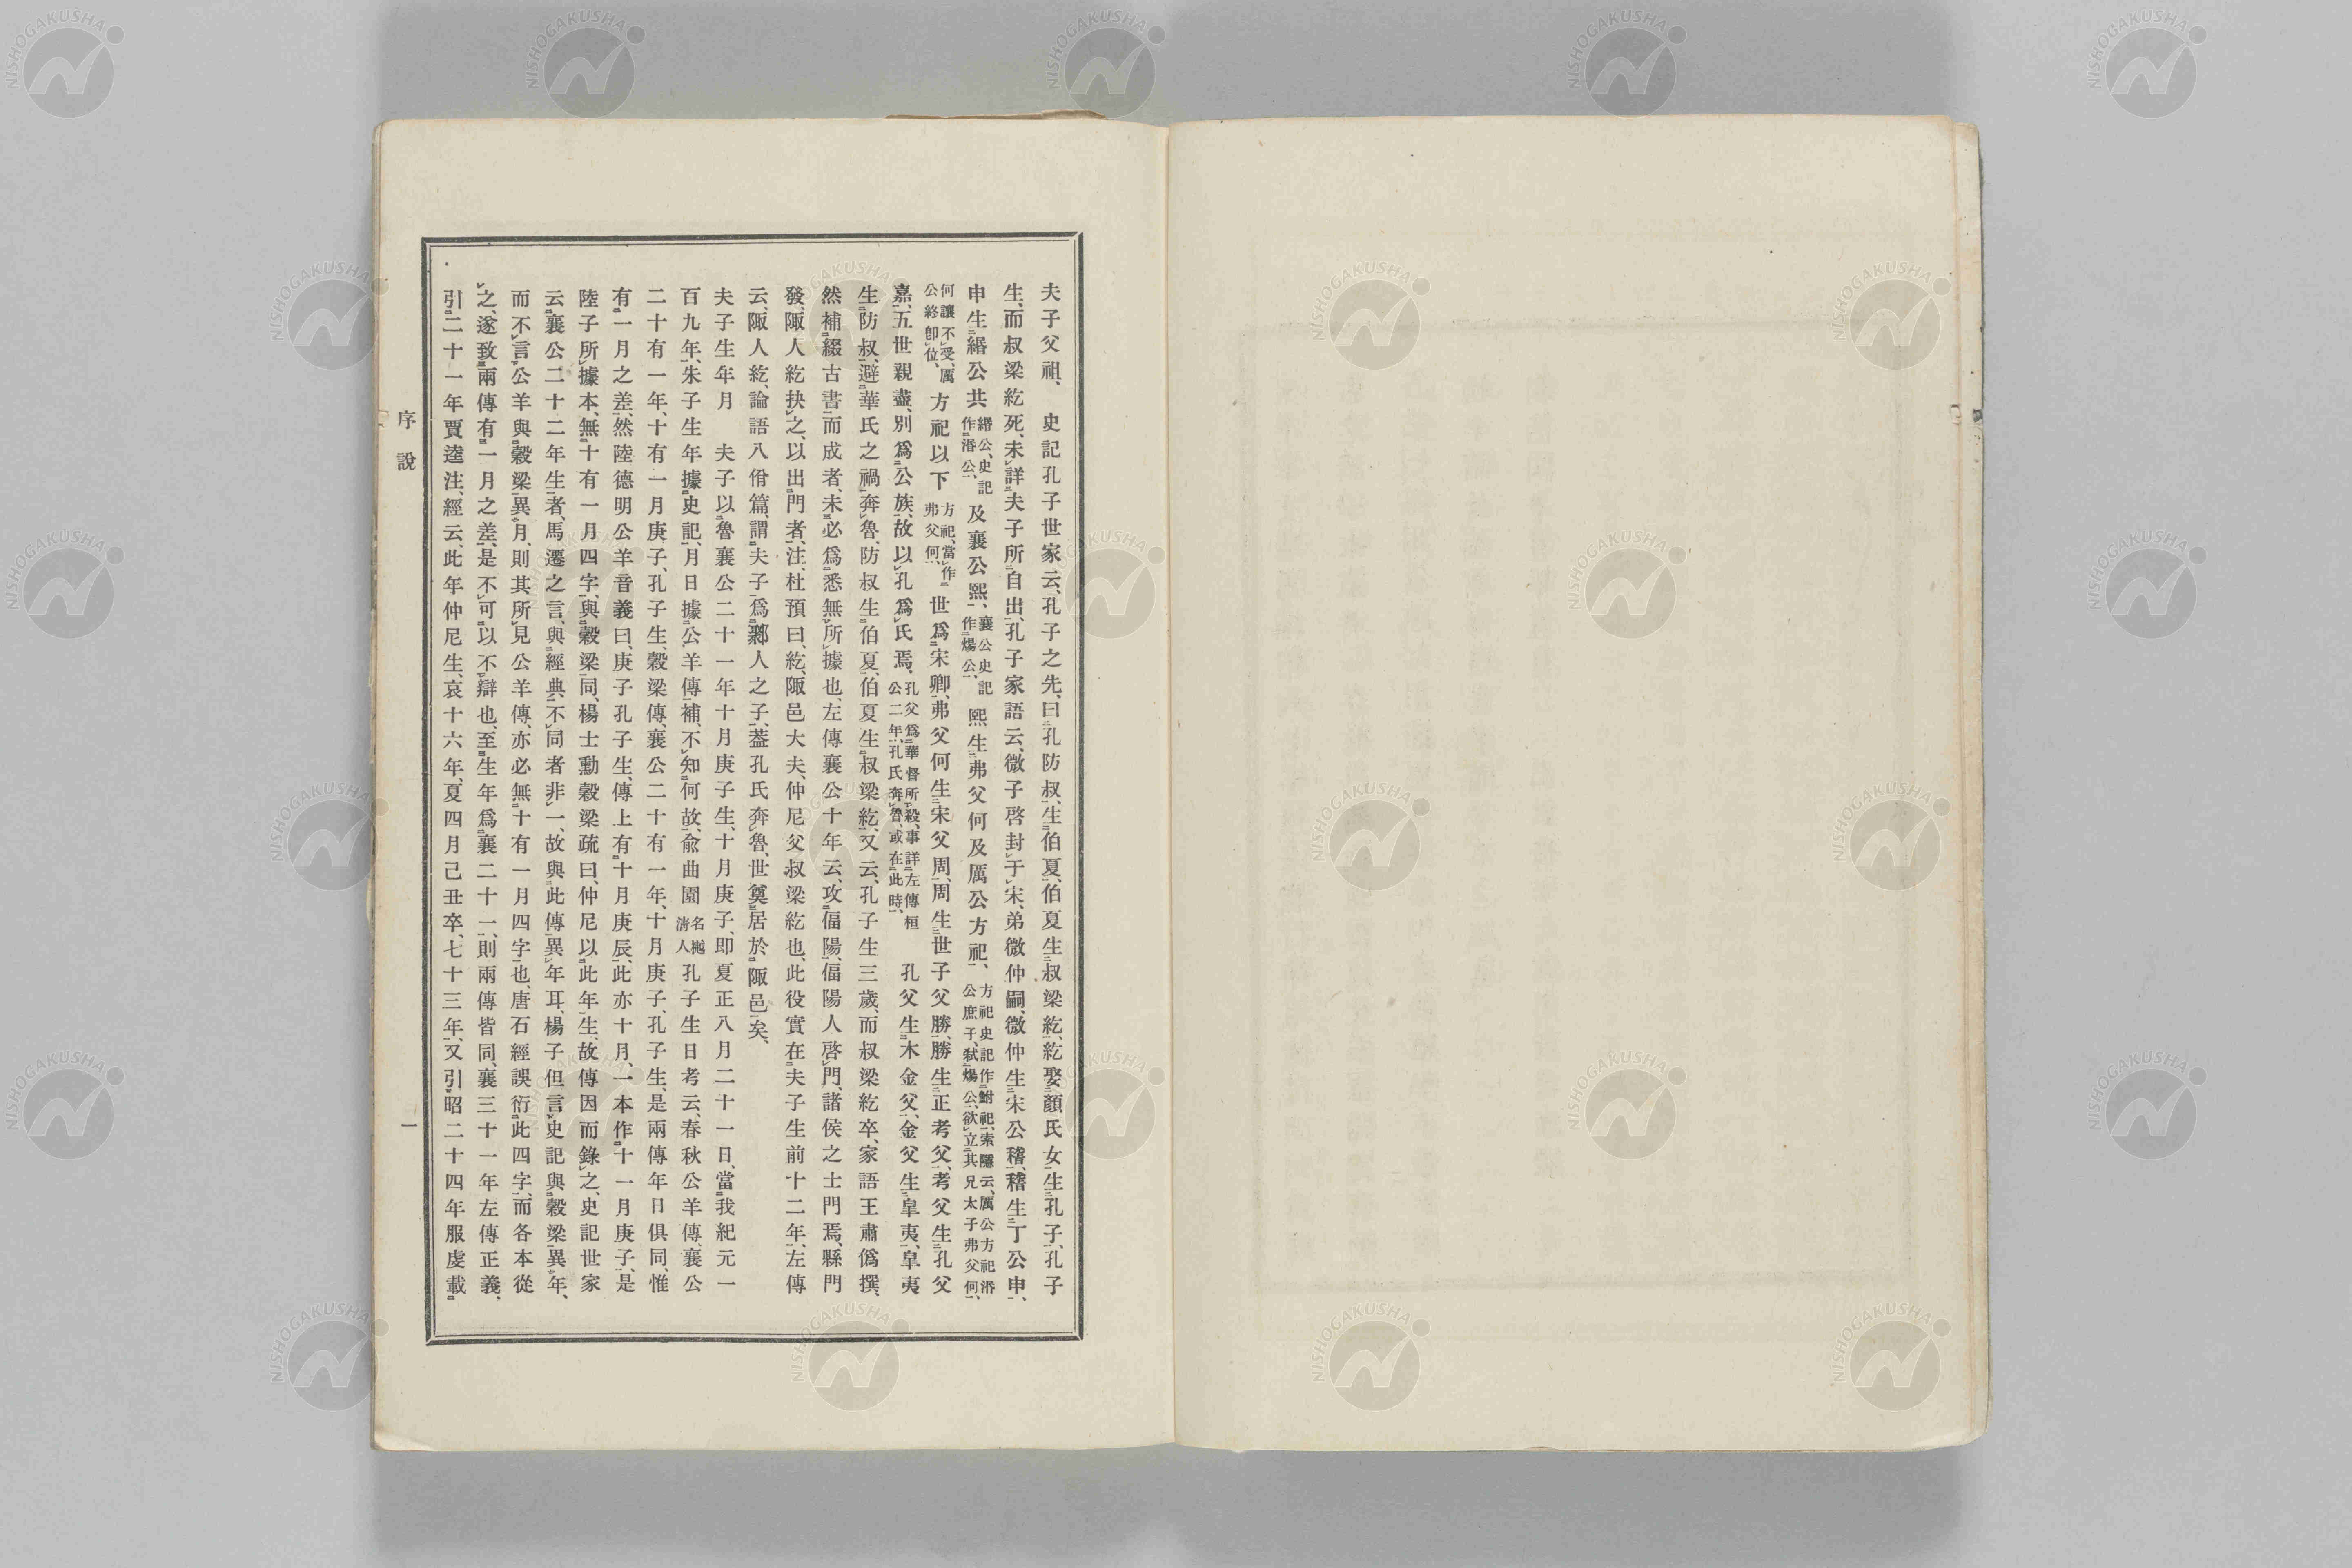 夫子父祖、史記孔子世家云、孔子之先、曰孔防叔、生伯夏、伯夏生叔梁紇、紇娶顏氏女生孔子、孔子
生、而叔梁紇死、未詳夫子所自出、孔子家語云、微子啓封于宋、弟微仲嗣、微仲生宋公稽、稽生丁公申、
申生緡公共緡公、史記作湣公、及襄公熙、襄公史記作煬公、熙生弗父何及厲公方祀、方祀史記作鮒祀、索隱云、厲公方祀湣公庶子、弑煬公、欲立其兄太子弗父何、
何讓不受、厲公終卽位、方祀以下方祀、當作弗父何、世爲宋卿、弗父何生宋父周、周生世子父勝、勝生正考父、考父生孔父
嘉、五世親盡、別爲公族、故以孔爲氏焉、孔父爲華督所殺、事詳左傳桓公二年、孔氏奔魯、或在此時、孔父生木金父、金父生皐夷、皐夷
生防叔、避華氏之禍、奔魯、防叔生伯夏、伯夏生叔梁紇、又云、孔子生三歲、而叔梁紇卒、家語王肅僞撰、
然補綴古書而成者、未必爲悉無所據也、左傳襄公十年云、攻偪陽、偪陽人啓門、諸侯之士門焉、縣門
發、陬人紇抉之、以出門者、注、杜預曰、紇、陬邑大夫、仲尼父叔梁紇也、此役實在夫子生前十二年、左傳
云、陬人紇、論語八佾篇、謂夫子爲鄹人之子、葢孔氏奔魯、世奠居於陬邑矣、
夫子生年月　夫子以魯襄公二十一年十月庚子生、十月庚子、卽夏正八月二十一日、當我紀元一
百九年、朱子生年據史記、月日據公羊傳補、不知何故、兪曲園名樾淸人孔子生日考云、春秋公羊傳、襄公
二十有一年、十有一月庚子、孔子生、穀梁傳、襄公二十有一年、十月庚子、孔子生、是兩傳年日俱同、惟
有一月之差、然陸德明公羊音義曰、庚子孔子生、傳上有十月庚辰、此亦十月、一本作十一月庚子、是
陸子所據本、無十有一月四字、與穀梁同、楊士勳穀梁疏曰、仲尼以此年生、故傳因而錄之、史記世家
云、襄公二十二年生者、馬遷之言、與經典不同者非一、故與此傳異年耳、楊子但言史記與穀梁異年、
而不言公羊與穀梁異月、則其所見公羊傳、亦必無十有一月四字也、唐石經誤衍此四字、而各本從
之、遂致兩傳有一月之差、是不可以不辯也、至生年爲襄二十一、則兩傳皆同、襄三十一年左傳正義、
引二十一年賈逵注、經云、此年仲尼生、哀十六年、夏四月己丑卒、七十三年、又引昭二十四年服虔載
序說
一
NISHOGAKUSHA